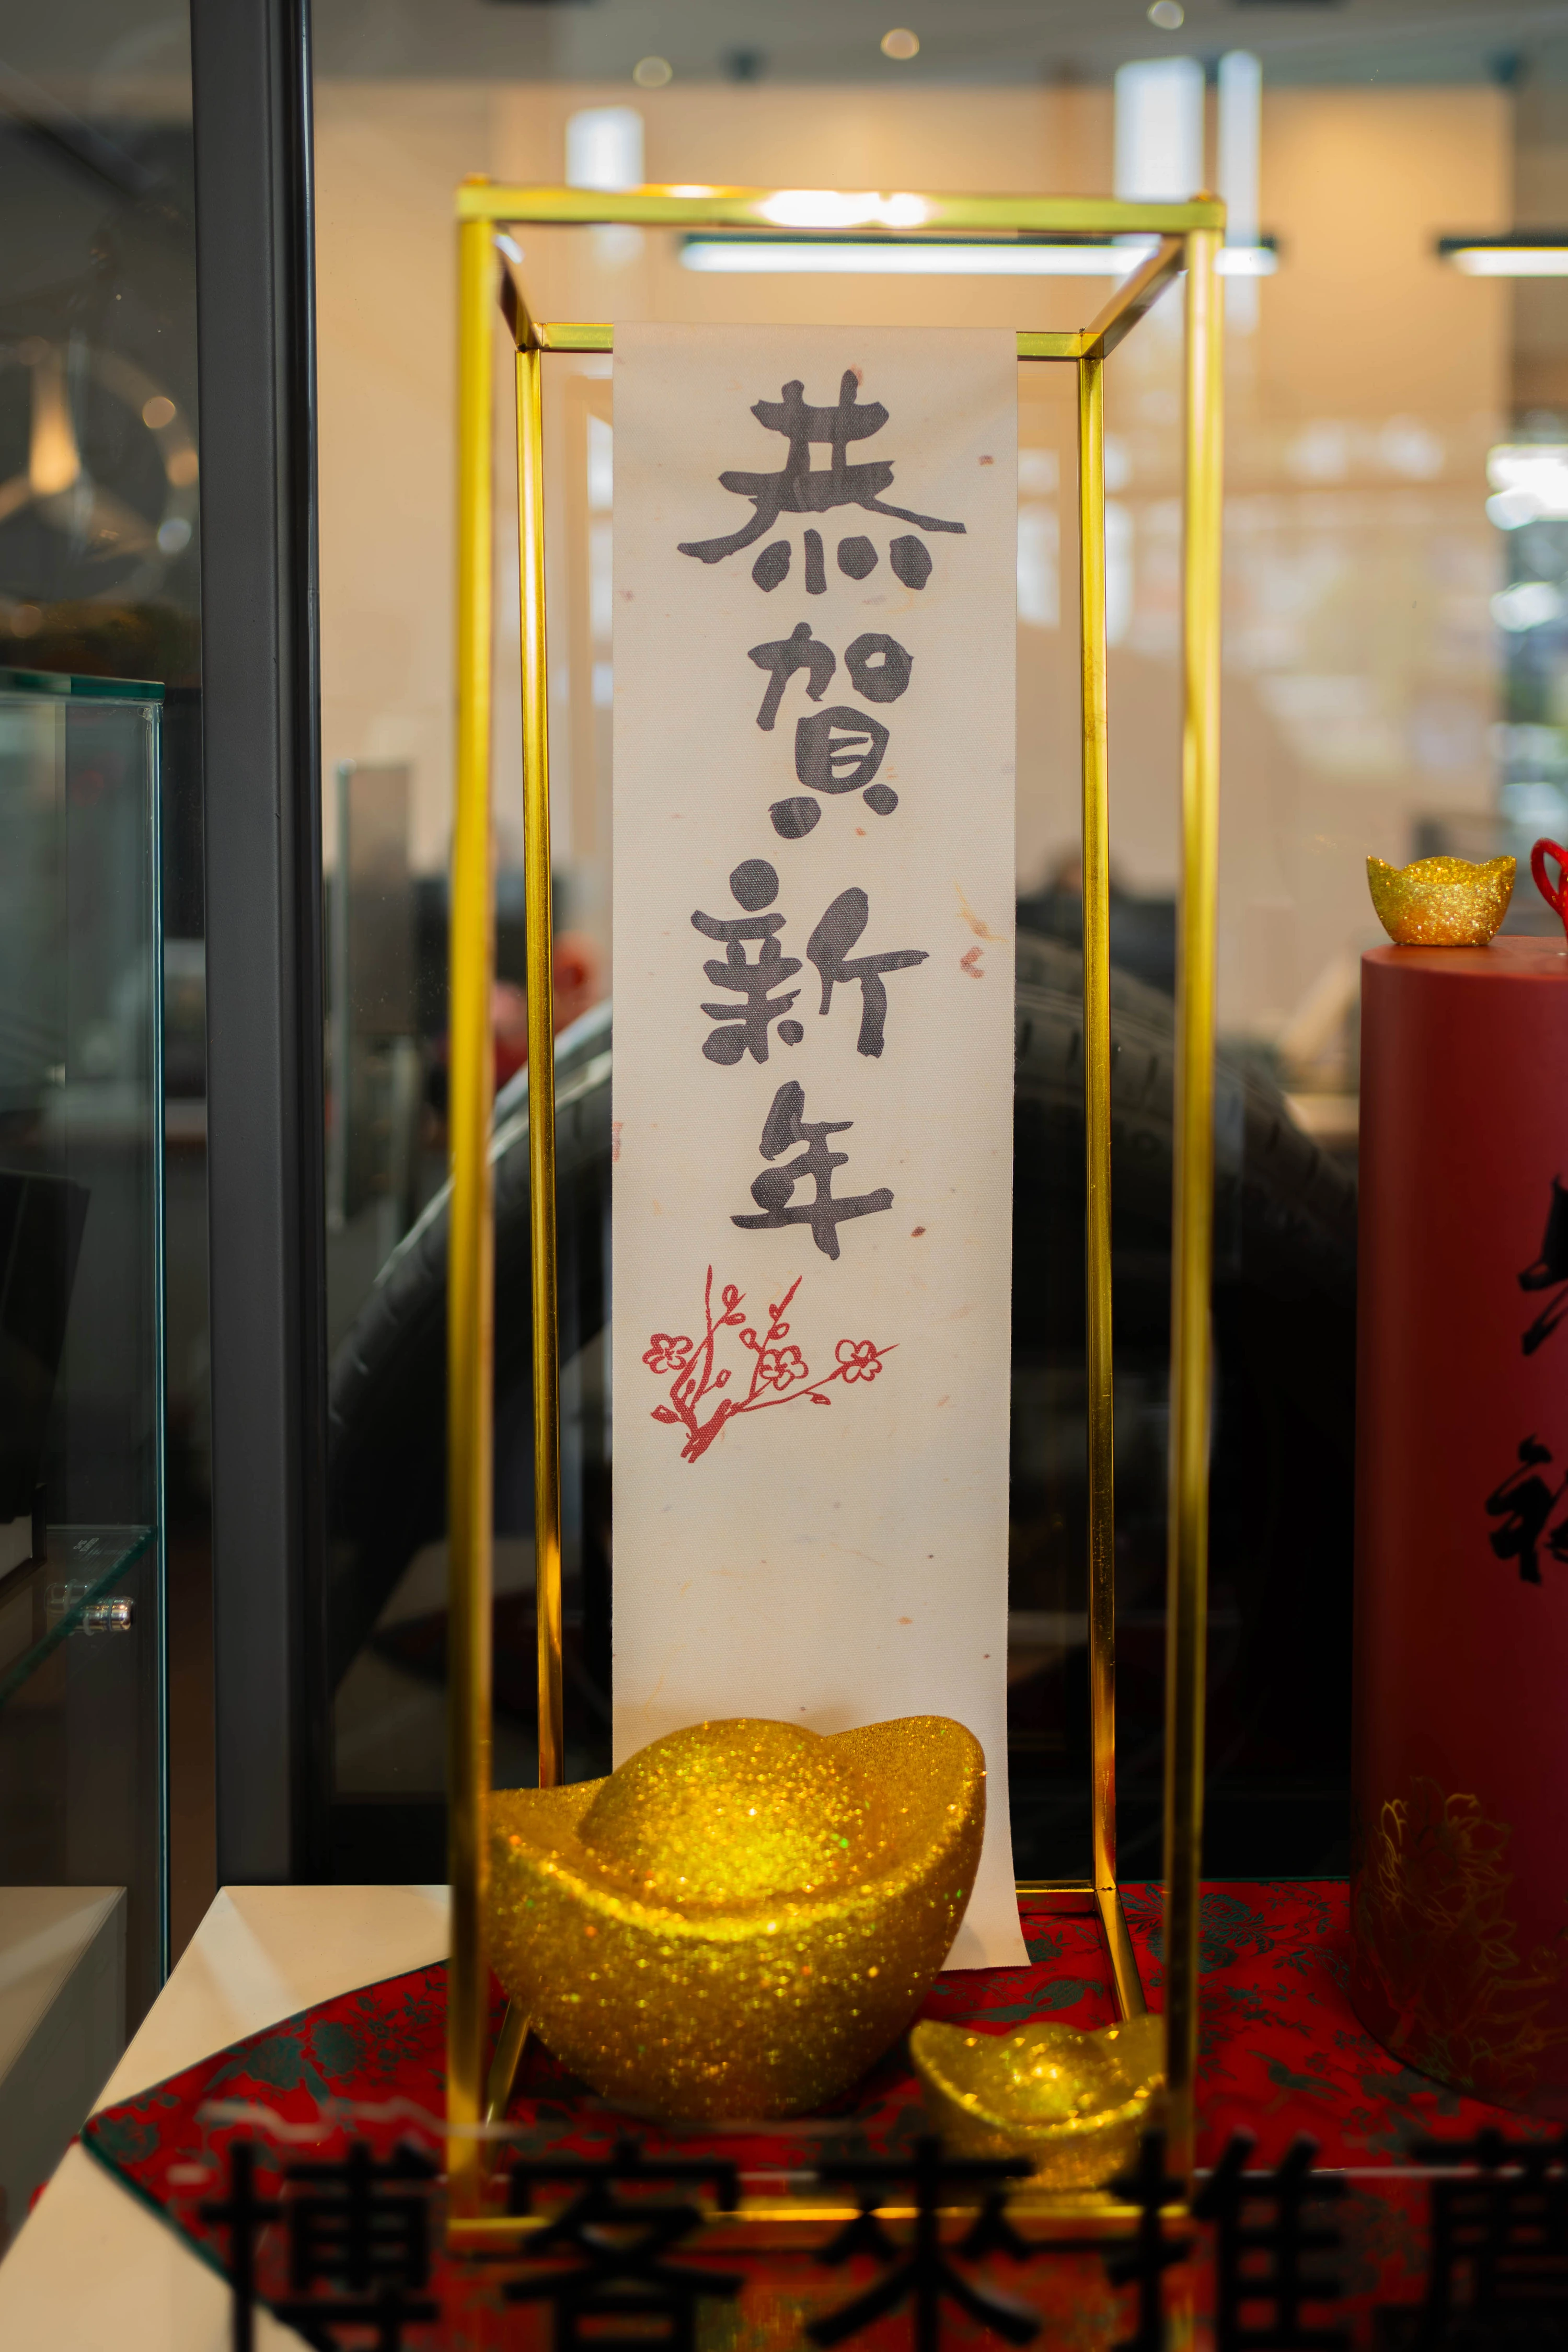 恭賀新年
博客來推薦